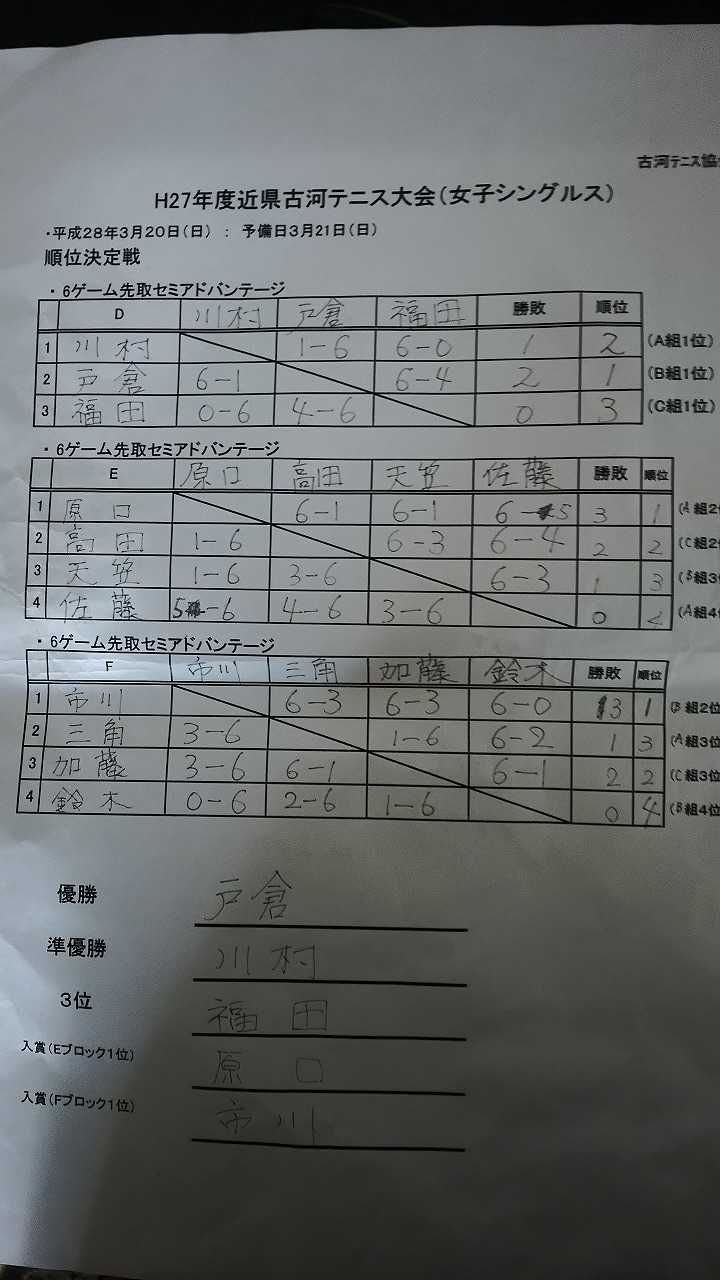 古河テニス協
H27年度近県古河テニス大会(女子シングルス)
・平成28年3月20日(日) : 予備日3月21日(日)
順位決定戦
・6ゲーム先取セミアドバンテージ
D 川村 戸倉 福田 勝敗 順位
1 川村 1-6 6-0 1 2 (A組1位)
2 戸倉 6-1 6-4 2 1 (B組1位)
3 福田 0-6 4-6 0 3 (C組1位)
・6ゲーム先取セミアドバンテージ
E 原口 高田 天笠 佐藤 勝敗 順位
1 原口 6-1 6-1 6-5 3 1 (A組2位
2 高田 1-6 6-3 6-4 2 2 (C組2位
3 天笠 1-6 3-6 6-3 1 3 (B組3位
4 佐藤 5-6 4-6 3-6 0 4 (A組4位
・6ゲーム先取セミアドバンテージ
F 市川 三角 加藤 鈴木 勝敗 順位
1 市川 6-3 6-3 6-0 3 1 (B組2位
2 三角 3-6 1-6 6-2 1 3 (A組3位
3 加藤 3-6 6-1 6-1 2 2 (C組3位
4 鈴木 0-6 2-6 1-6 0 4 (B組4位
優勝 戸倉
準優勝 川村
3位 福田
入賞(Eブロック1位) 原口
入賞(Fブロック1位) 市川